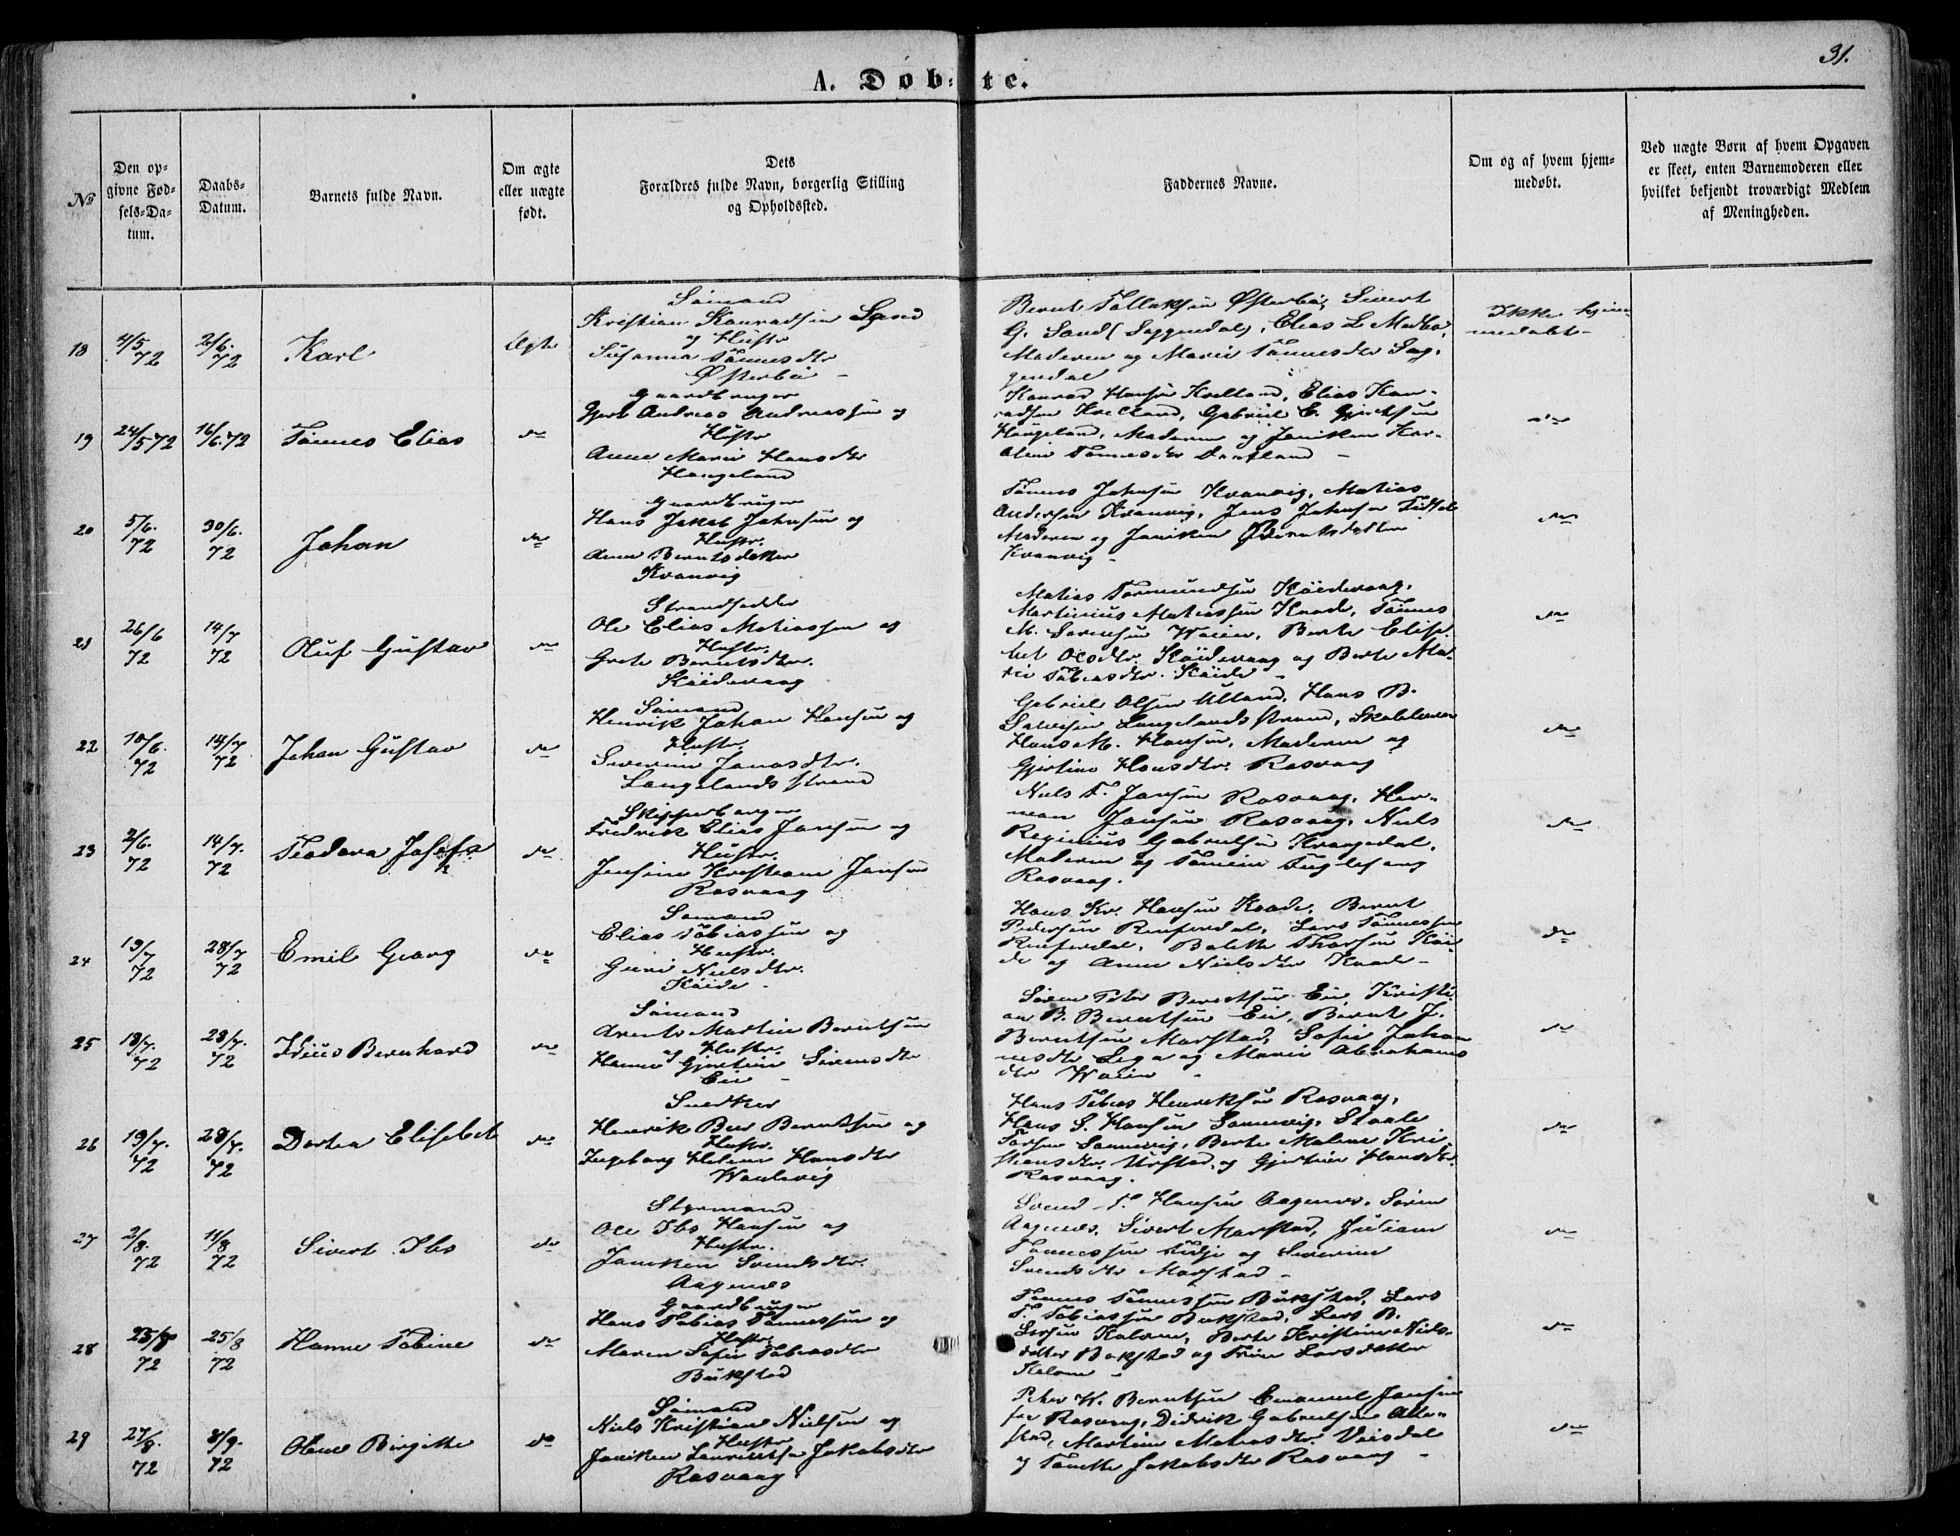 31.
A. Døb- te.
No
Den op-
givne Fød-
sels-Da-
tum.
Daabs-
Datum.
Barnets fulde Navn.
Om ægte
eller uægte
født.
Dets
Forældres fulde Navn, borgerlig Stilling
og Opholdssted.
Faddernes Navne.
Om og af hvem hjem-
medøbt.
Ved uægte Børn af hvem Opgaven
er skeet, enten Barnemoderen eller
hvilket bekjendt troværdigt Medlem
af Meningheden.
18
4/5 72
2/6. 72
Karl
Ægte
Sømand
Kristian Konradsen Sand
og Hustr
Susanna Tønnesdtr
Østerbø -
Bernt Tollaksen Østerbø, Sivert
G. Sand (Saggendal), Elias L Molbo,
Moderen og Marie Tønnesdtr Sag-
gendal
Ikke hjem-
medøbt -
19
24/5 72
16/6. 72
Tønnes Elias
do
Gaardbruger
Gjert Andreas Andreassen og
Hustr
Anne Marie Hansdtr
Haugeland
Konrad Hansen Kvelland, Elias Kon-
radsen Kvelland, Gabriel E. Gjertsen
Haugeland, Moderen og Janiken Kar-
oline Tønnesdtr -
do
20
5/6. 72
30/6. 72
Johan
do
Gaardbruger
Hans Jakob Johnsen og
Hustr.
Anne Berntsdatter
Kvanvig
Tønnes Johnsen Kvanvig, Matias
Andersen Kvanvig, Jens Johnsen
Moderen og Janiken Berntsdatter
Kvanvig -
do
21
26/6 72
14/7 72
Oluf Gustav
do
Strandsidder
Ole Elias Matiassen og
Hustr.
Grete Berntsdtr.
Køidevaag
Matias Tormundsen Køidevaag,
Martinius Matiassen Kaade, Tønnes
M. Sørensen Waien, Berte Elisa-
bet Olsdtr. Køidevaag og Berte Ma-
rie Tobiasdtr. Køide -
do
22
10/6. 72
14/7 72
Johan Gustav
do
Sømand
Henrik Johan Hansen og
Hustr.
Severine Jonasdtr.
Langelands strand
Gabriel Olsen Ulland, Hans B.
Salvesen Langelandsstrand, Skolelærer
Hans M. Hansen, Moderen og
Gjertine Hansdtr. Rasvaag
do
23
2/6. 72
14/7. 72
Teodora Josefa
do.
Skipperborger
Fredrik Elias Jansen og
Hustr.
Jensine Kristiane Jansen
Rasvaag
Niels F. Jansen Rasvaag, Her-
man Jansen Rasvaag, Niels
Reginius Gabrielsen Kragedal,
Moderen og Tomine Fuglesang
Rasvaag.
do
24
19/7 72
28/7 72
Emil Georg
do
Sømand
Elias Tobiassen og
Hustr.
Guri Nielsdtr.
Køide -
Hans Kr. Hansen Kaade, Bernt
Pedersen Renferdal, Lars Tønnessen
Renferdal, Bolette Thorsen Køi-
de og Anne Nielsdtr Kaade -
do
25
18/7. 72
28/7. 72
Frius Bernhard
do
Sømand
Arents Martin Berntsen
og Hustr.
Hanne Gjertine Sørensdtr
Eie -
Søren Peter Berntsen Eie, Kristi-
an B. Berntsen Eie, Bernt J.
Berntsen Marstad, Sofie Johan
nesdtr Lega og Marie Abrahams
dtr Waien -
do
26
19/7. 72
28/7. 72
Dortea Elisebet
do
Snedker
Henrik Beer Berntsen og
Hustr.
Ingeborg Helene Hansdtr
Waulevig
Hans Tobias Henriksen Rasvaag,
Hans S. Hansen Sannevig, Staale
Torsen Sannevig, Berte Malene Kri-
stiansdtr. Urstad, og Gjertine Hansdtr.
Rasvaag.
do
27
2/8. 72
11/8 72
Sivert Ibs
do
Styrmand
Ole Ibs Hansen og
Hustr.
Janiken Svendsdtr.
Aagenæs
Svend T. Hansen Aagenæs, Søren
Aagenæs, Sivert Marstad, Juliane
Tønnessen Tidje og Severine
Svendsdtr Marstad -
do
28
23/8 72
25/8 72
Hanne Tobine
do
Gaardbruger
Hans Tobias Tønnessen og
Hustr
Maren Sofie Tobiasdtr
Bukstad
Tønnes Tønnessen Bukstad, Lars
T. Tobiassen Bukstad, Lars B.
Larsen Kalven, Berte Kristine Niels-
datter Bokstad og Trine Larsdatter
Kalven -
do
29
27/8. 72
8/9. 72
Oline Birgitte
do
Sømand
Niels Kristian Nielsen og
Hustr
Janiken Lauritse Jakobsdtr
Rasvaag
Peter W. Berntsen Emanuel Jansen
for Rasvaag, Didrik Gabrielsen Alle-
stad, Martine Matiasdtr. Veisdal
og Tonette Jakobsdtr Rasvaag -
do